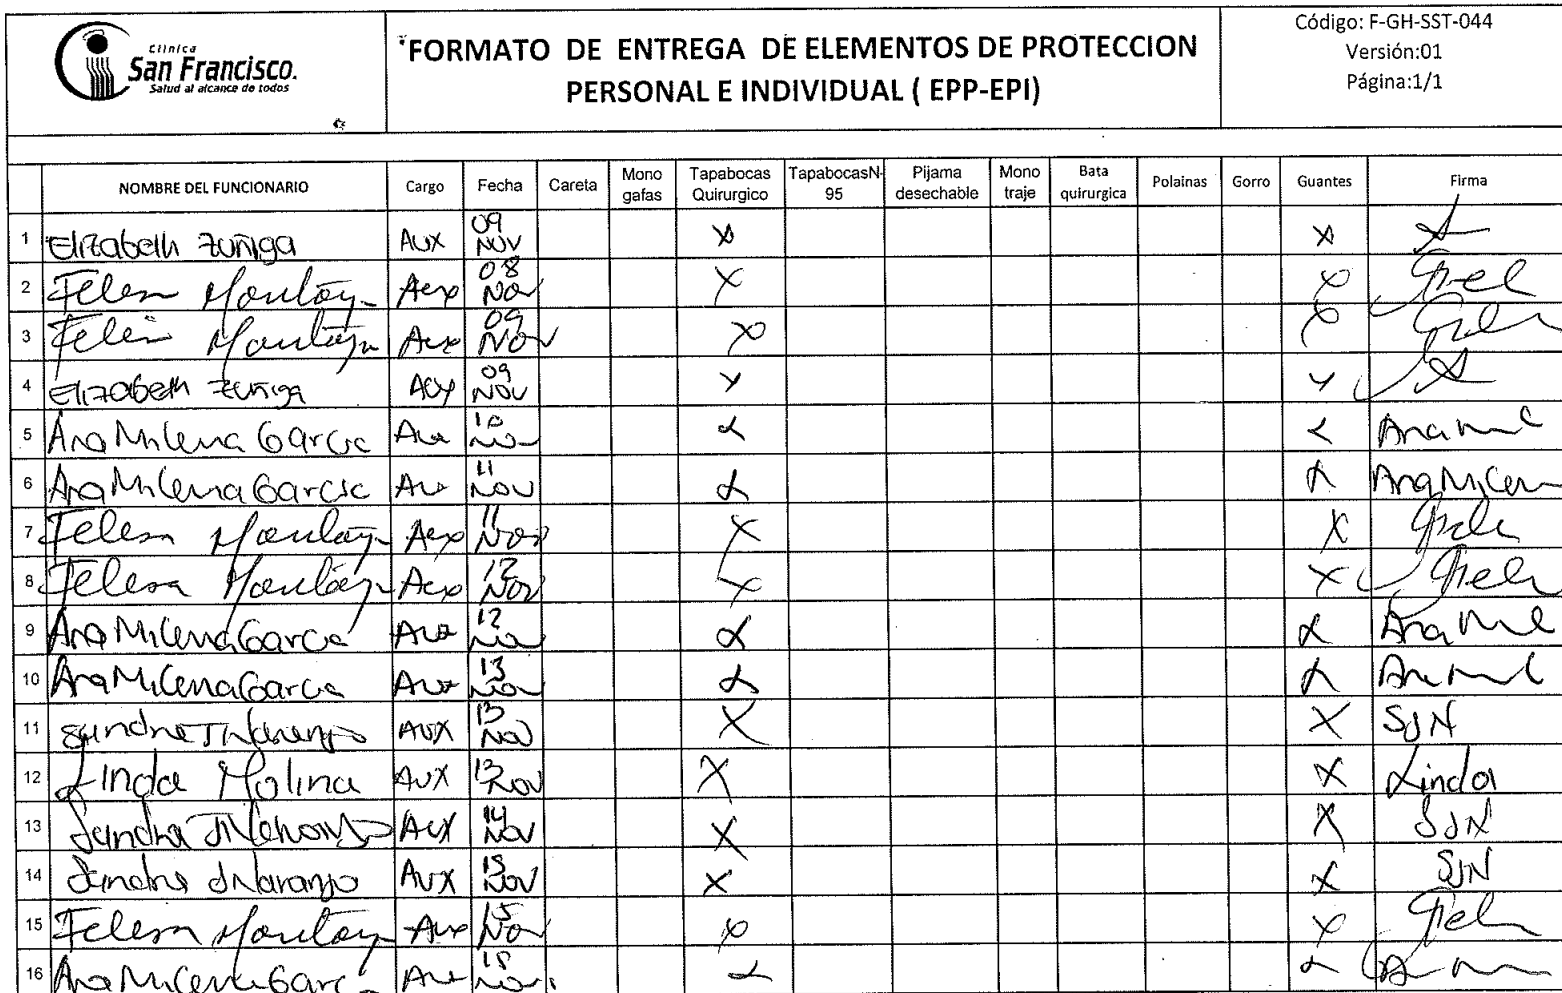 Clínica
San Francisco.
Salud al alcance de todos
FORMATO DE ENTREGA DE ELEMENTOS DE PROTECCION
PERSONAL E INDIVIDUAL ( EPP-EPI)
Código: F-GH-SST-044
Versión:01
Página:1/1
NOMBRE DEL FUNCIONARIO Cargo Fecha Careta Mono gafas Tapabocas Quirurgico TapabocasN-95 Pijama desechable Mono traje Bata quirurgica Polainas Gorro Guantes Firma
1 Elizabeth Zuñiga AUX 09 NOV X X
2 Aux 08 Nov X X
3 Aux 09 Nov X X
4 Elizabeth Zuñiga AUX 09 NOV X X
5 Ana Milena Garcia Aux 10 Nov X X
6 Ana Milena Garcia Aux 11 Nov X X Ana Milen
7 Aux 11 Nov X X
8 Aux 12 Nov X X
9 Ana Milena Garcia Aux 12 Nov X X
10 Ana Milena Garcia Aux 13 Nov X X
11 Sandra J Naranjo AUX 13 Nov X X SJN
12 Linda Molina AUX 13 Nov X X Linda
13 Sandra J Naranjo AUX 14 Nov X X SJN
14 Sandra J Naranjo AUX 15 Nov X X SJN
15 Aux 15 Nov X X
16 Ana Milena Garc Aux 15 Nov X X